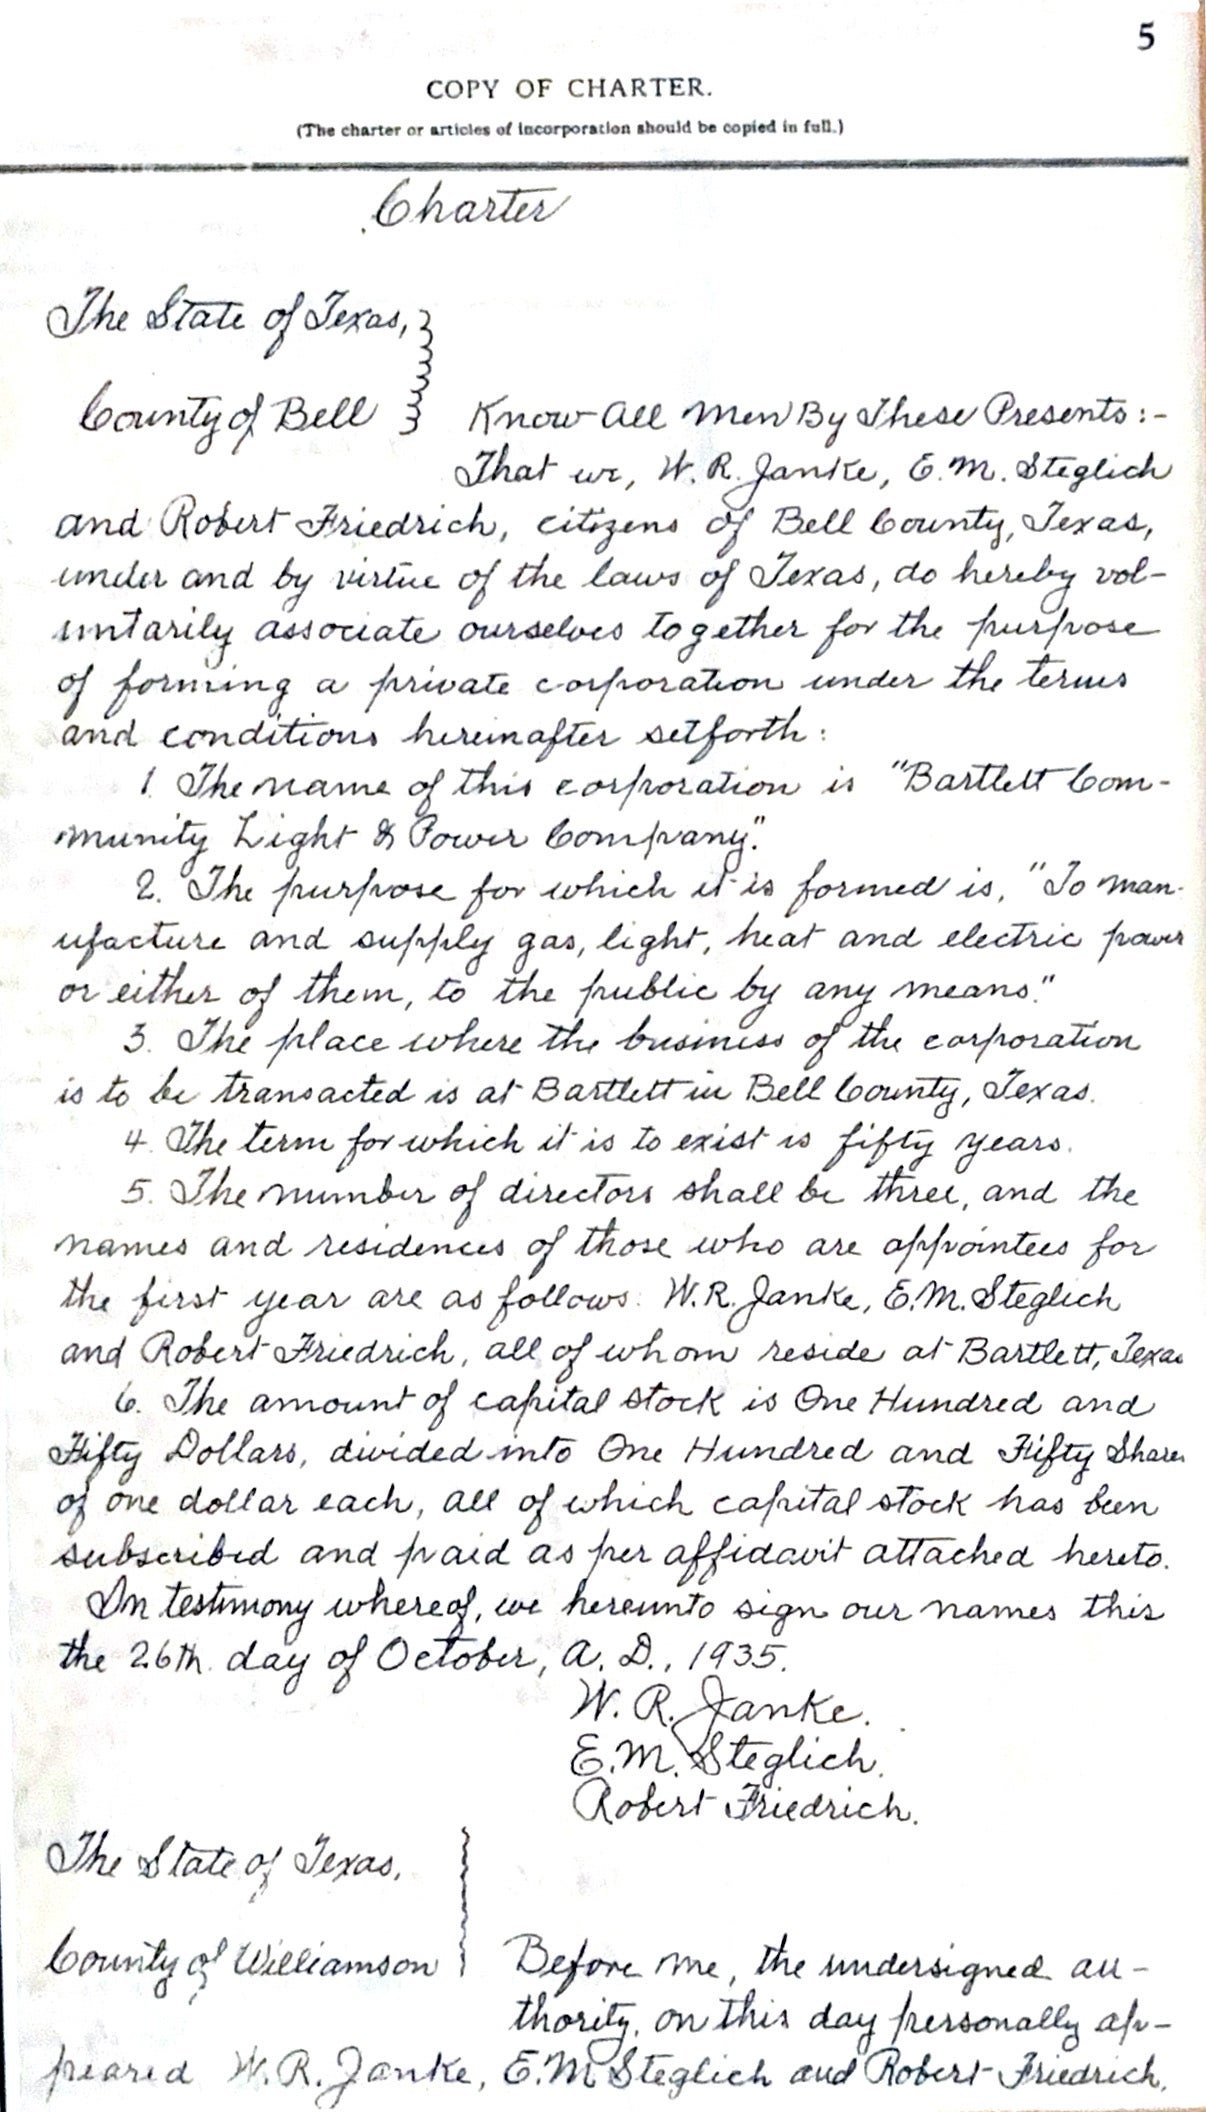 5
COPY OF CHARTER.
(The charter or articles of incorporation should be copied in full.)
Charter
The State of Texas,
County of Bell Know All Men By These Presents:-
That we, W. R. Janke, E. M. Steglich
and Robert Friedrich, citizens of Bell County, Texas,
under and by virtue of the laws of Texas, do hereby vol-
untarily associate ourselves together for the purpose
of forming a private corporation under the terms
and conditions hereinafter setforth:
1. The name of this corporation is "Bartlett Com-
munity Light & Power Company."
2. The purpose for which it is formed is, "To man-
ufacture and supply gas, light, heat and electric power
or either of them, to the public by any means."
3. The place where the business of the corporation
is to be transacted is at Bartlett in Bell County, Texas.
4. The term for which it is to exist is fifty years.
5. The number of directors shall be three, and the
names and residences of those who are appointees for
the first year are as follows: W. R. Janke, E. M. Steglich
and Robert Friedrich, all of whom reside at Bartlett, Texas
6. The amount of capital stock is One Hundred and
Fifty Dollars, divided into One Hundred and Fifty Shares
of one dollar each, all of which capital stock has been
subscribed and paid as per affidavit attached hereto.
In testimony whereof, we hereunto sign our names this
the 26th. day of October, A. D., 1935.
W. R. Janke.
E. M. Steglich.
Robert Friedrich.
The State of Texas,
County of Williamson Before me, the undersigned au-
thority, on this day personally ap-
peared W. R. Janke, E. M Steglich and Robert Friedrich,